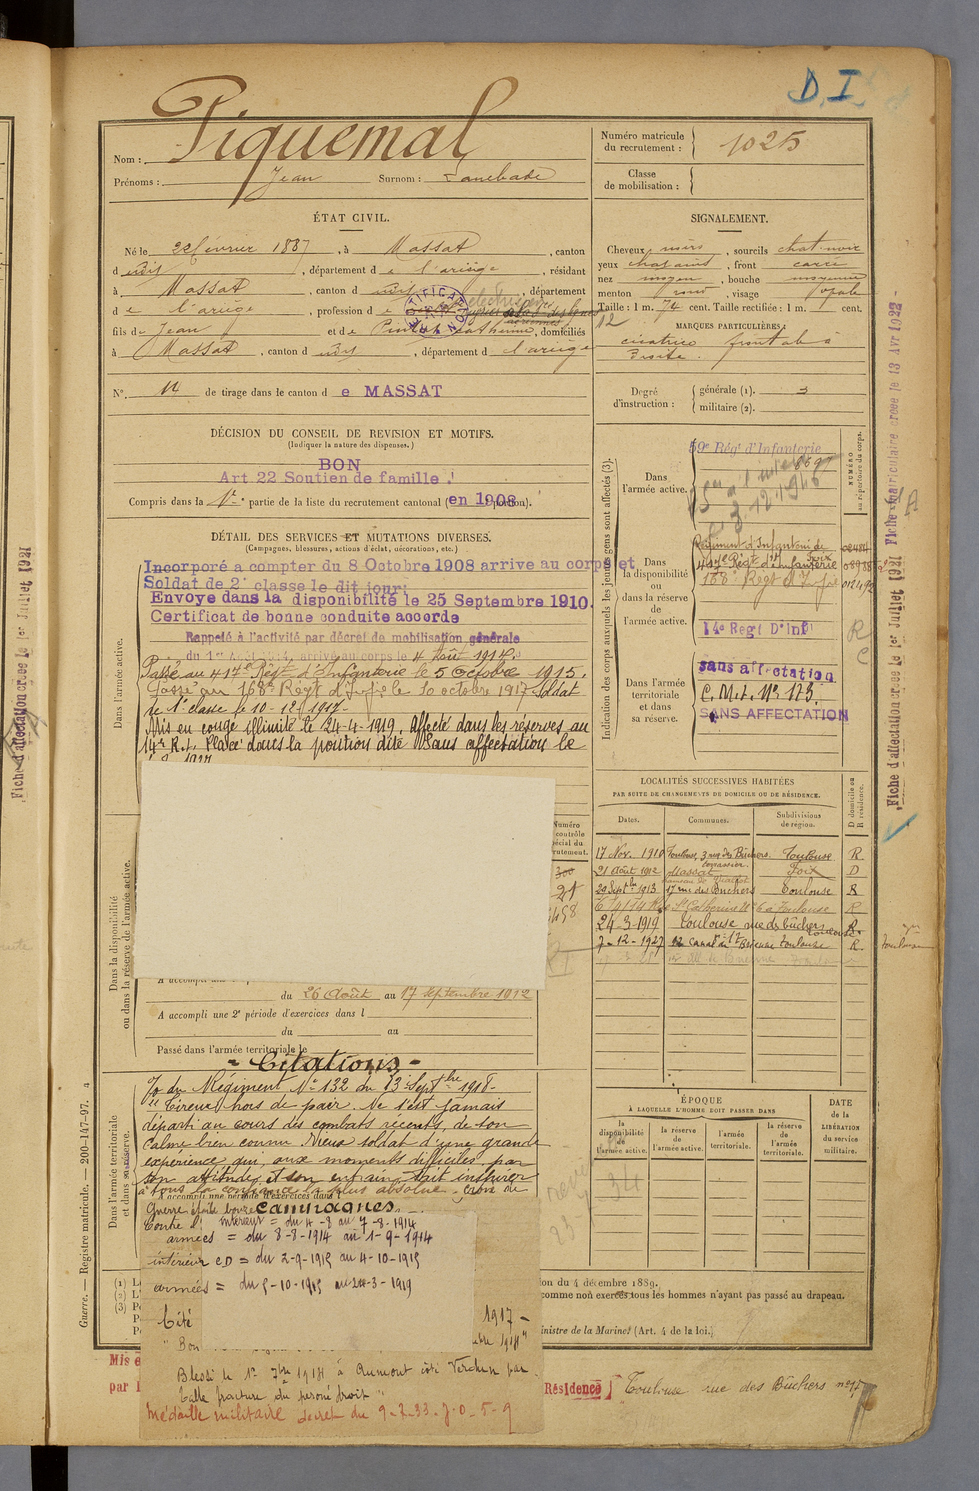 D. I
Nom : Piquemal
Prénoms : Jean Surnom :
Numéro matricule du recrutement : 1025
Classe de mobilisation :
ÉTAT CIVIL.
Né le 22 février 1887, à Massat, canton
d udit, département d e l'ariège, résidant
à Massat, canton d udit, département
d e l'ariège, profession d
fils de Jean et de Catherine, domiciliés
à Massat, canton d udit, département d e l'ariège
N° 11 de tirage dans le canton d e MASSAT
SIGNALEMENT.
Cheveux noirs, sourcils chat. noir
yeux chatains, front carré
nez moyen, bouche moyenne
menton rond, visage ovale
Taille : 1 m. 74 cent. Taille rectifiée : 1 m. cent.
MARQUES PARTICULIÈRES :
cicatrice frontale à
droite.
Degré d'instruction : générale (1). 3
militaire (2).
DÉCISION DU CONSEIL DE REVISION ET MOTIFS.
(Indiquer la nature des dispenses.)
BON
Art 22 Soutien de famille
Compris dans la 1re partie de la liste du recrutement cantonal (en 1908 portion).
DÉTAIL DES SERVICES ET MUTATIONS DIVERSES.
(Campagnes, blessures, actions d'éclat, décorations, etc.)
Dans l'armée active.
Incorporé a compter du 8 Octobre 1908 arrive au corps et
Soldat de 2e classe le dit jour
Envoye dans la disponibilité le 25 Septembre 1910.
Certificat de bonne conduite accorde
Rappelé à l'activité par décret de mobilisation générale
du 1er Août 1914, arrivé au corps le 4 Août 1914.
Passé au 417e Régt d'Infanterie le 5 Octobre 1915.
Passé au 168e Regt d'Infie le 10 octobre 1917 Soldat
de 1e classe le 10-12-1917-
Mis en congé illimité le 24-4-1919. Affecté dans les réserves au
14e R.I. Placé dans la position dite "Sans affectation le
Indication des corps auxquels les jeunes gens sont affectés (3).
NUMÉRO au répertoire du corps.
Dans l'armée active.
59e Régt d'Infanterie
8697
Dans la disponibilité ou dans la réserve de l'armée active.
Régiment d'Infanterie de Foix
417e Régt d'Infanterie
168e Regt d'Infie
14e Regt D'Inf
Dans l'armée territoriale et dans sa réserve.
sans affectation
C.M.I. N° 173
SANS AFFECTATION
Fiche d'affectation creee le 1er Juillet 1921
Fiche matriculaire creee le 13 Avr 1922
Fiche d'affectation creee le 1er Juillet 1921
LOCALITÉS SUCCESSIVES HABITÉES
PAR SUITE DE CHANGEMENTS DE DOMICILE OU DE RÉSIDENCE.
Dates. Communes. Subdivisions de région. D domicile ou R résidence.
17 Nov. 1910 Toulouse, 3 rue des Bûchers. Toulouse R
21 Août 1912 Massat Foix D
29 Septbre 1913 17 rue des Buchers Toulouse R
24-3-1919 Toulouse rue des bûchers Toulouse R
7-12-1927 12 Canal de Brienne Toulouse R.
Dans la disponibilité ou dans la réserve de l'armée active.
du 26 Août au 17 Septembre 1912
A accompli une 2e période d'exercices dans l
du au
Passé dans l'armée territoriale le
- Citations -
O/ du Régiment N° 132 du 13 Septbre 1918-
"Tireur hors de pair. Ne s'est jamais
départi au cours des combats récents, de son
calme bien connu. Vieux soldat d'une grande
expérience qui, aux moments difficiles, par
son attitude et son entrain sait inspirer
à tous la confiance la plus absolue. Croix de
Guerre étoile bronze
Campagnes
Contre l'
intérieur = du 4-8 au 7-8-1914
armées = du 8-8-1914 au 1-9-1914
intérieur CD = du 2-9-1915 au 4-10-1915
armées = du 5-10-1915 au 24-3-1919
Cité 1917 -
" Bon
Blessé le 1er 7bre 1918 à
balle fracture du peroné droit "
Médaille militaire decret du 9-2-33. J.O. 5-9
Dans l'armée territoriale et dans sa réserve.
Guerre. — Registre matricule. — 200-147-97.
ÉPOQUE
À LAQUELLE L'HOMME DOIT PASSER DANS
la disponibilité de l'armée active. la réserve de l'armée active. l'armée territoriale. la réserve de l'armée territoriale.
DATE de la LIBÉRATION du service militaire.
ion du 4 décembre 1889.
comme non exercés tous les hommes n'ayant pas passé au drapeau.
inistre de la Marine (Art. 4 de la loi.)
Mis e
par l
Résidence Toulouse rue des Bûchers n° 17